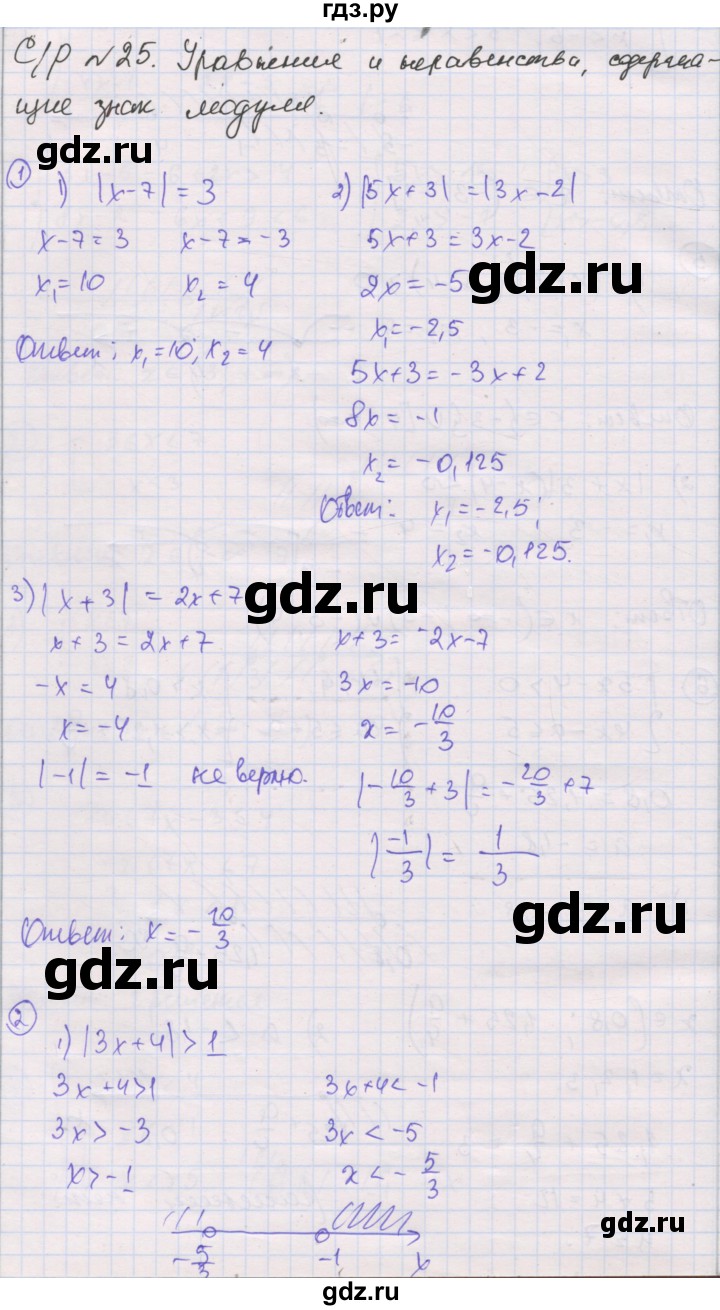 гдз.ру
С/Р №25. Уравнения и неравенства, содержа-
щие знак модуля.
gdz.ru
1 1) |x-7| = 3
x-7=3 x-7=-3
x₁=10 x₂=4
Ответ: x₁=10; x₂=4
2) |5x+3| = |3x-2|
5x+3=3x-2
gdz.ru
2x=-5
x₁=-2,5
5x+3=-3x+2
8x=-1
x₂=-0,125
Ответ: x₁=-2,5;
x₂=-0,125.
3) |x+3| = 2x+7
gdz.ru
x+3=2x+7 x+3=-2x-7
-x=4 3x=-10
x=-4 x=-10/3
|-1|=-1 не верно. |-10/3+3|=-20/3+7
|-1/3|=1/3
gdz.ru
Ответ: x=-10/3
gdz.ru
2
1) |3x+4|>1
3x+4>1 3x+4<-1
3x>-3 3x<-5
x>-1 x<-5/3
gdz.ru
-5/3 -1 x
gdz.ru
gdz.ru